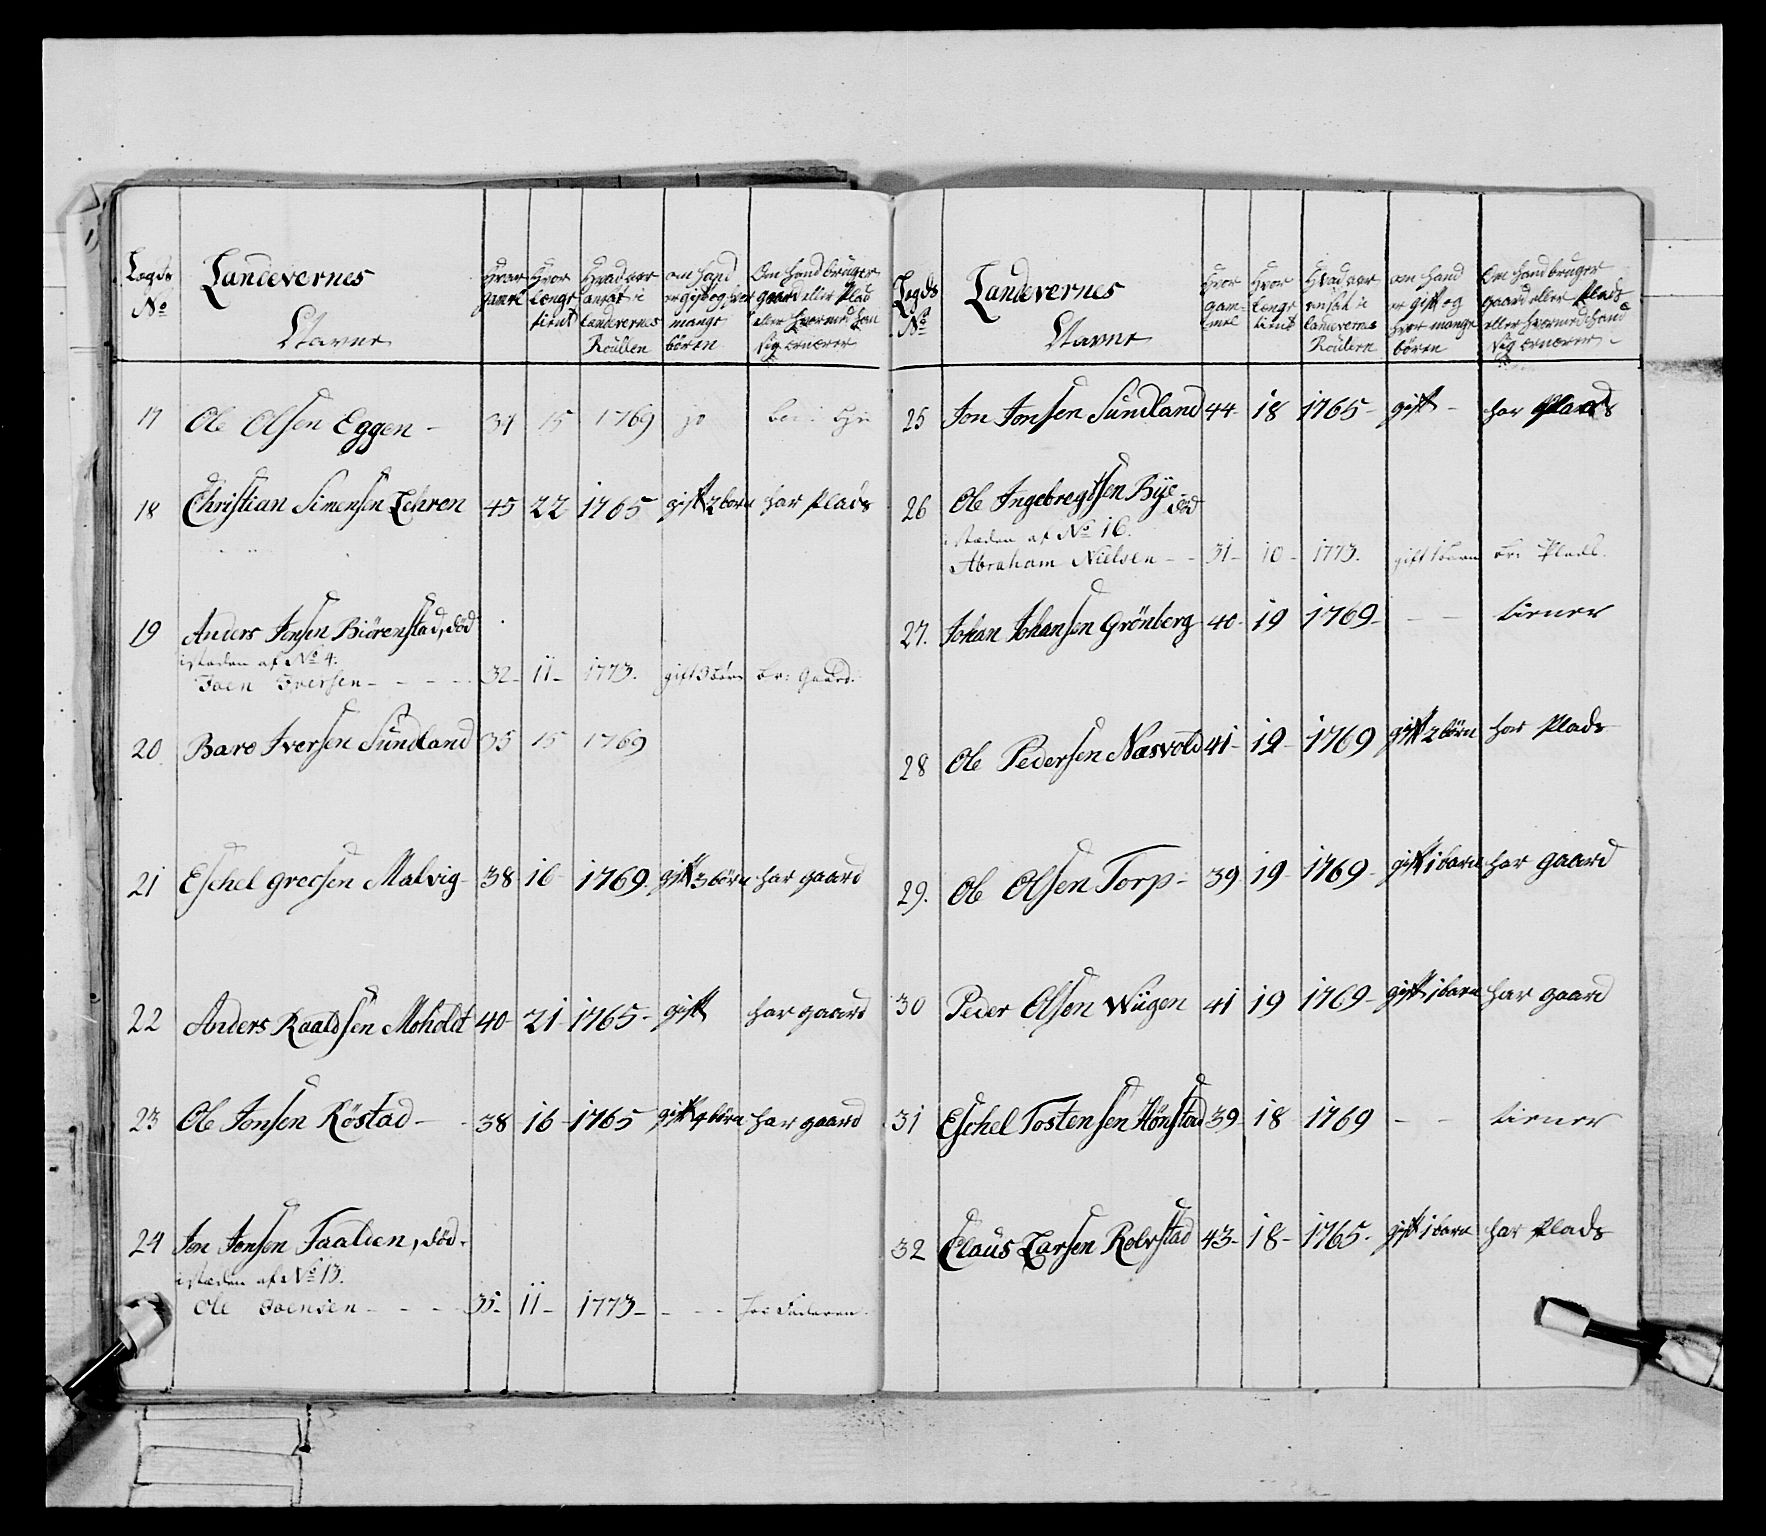 Legds No
Landevernes Navne
Hvor gaml
Hvor lenge tient
Hvad aar ansat i landevernes Roullen
om hand er gift og hvor mange børen
Om hand bruger gaard eller Plad eller hvormed han sig ernærer
17 Ole Olsen Eggen - 34 15 1769
18 Christian Simensen Lehren 45 22 1765 gift 2 børn har Plads
19 Anders Jonsen Biörenstad, död
istæden af No 4:
Joen Iversen - - - - 32 - 11 - 1773. gift 3 börn br: Gaard:
20 Baro Iversen Sundland 35 15 1769
21 Eschel Grecsen Malvig - 38 16 1769 - gift 3 börn har gaard
22 Anders Raaldsen Moholdt 40 - 21 - 1765 - gift har gaard
23 Ole Jonsen Röstad - - 38 - 16 - 1765 gift 4 börn har gaard
24 Jon Jonsen Taalden, död.
istæden af No 13.
Ole Joensen - - - - 35 - 11 - 1773 - - - - hos Faderen.
Legds No
Landevernes Navne
Hvor gammel
Hvor lenge tient
Hvad aar ansat i landevernes Roullen
om hand er gift og hvor mange börn
Om hand bruger gaard eller Plads eller hvormed hand sig ernærer -
25 Jon Jonsen Sundland 44 - 18 1765 - gift - har Plads
26 Ole Ingebregtsen Bÿe död
istæden af No 16.
Abraham Nielsen - - 31 - 10 - 1773. gift 1 barn br: Plads.
27. Johan Johansen Grönberg 40 - 19 1769 - - - tiener
28 Ole Pedersen Næsvold 41 - 19 - 1769 gift 2 börn har Plads
29. Ole Olsen Torp - 39 19 1769 - gift 1 barn har gaard
30 Peder Olsen Wiigen 41 19 1769 - gift 1 barn har gaard
31 Eschel Tostensen Hönstad 39 - 18 - 1769 - - tiener
32 Claus Larsen Rolvstad 43 - 18 - 1765 - gift 1 barn har Plads